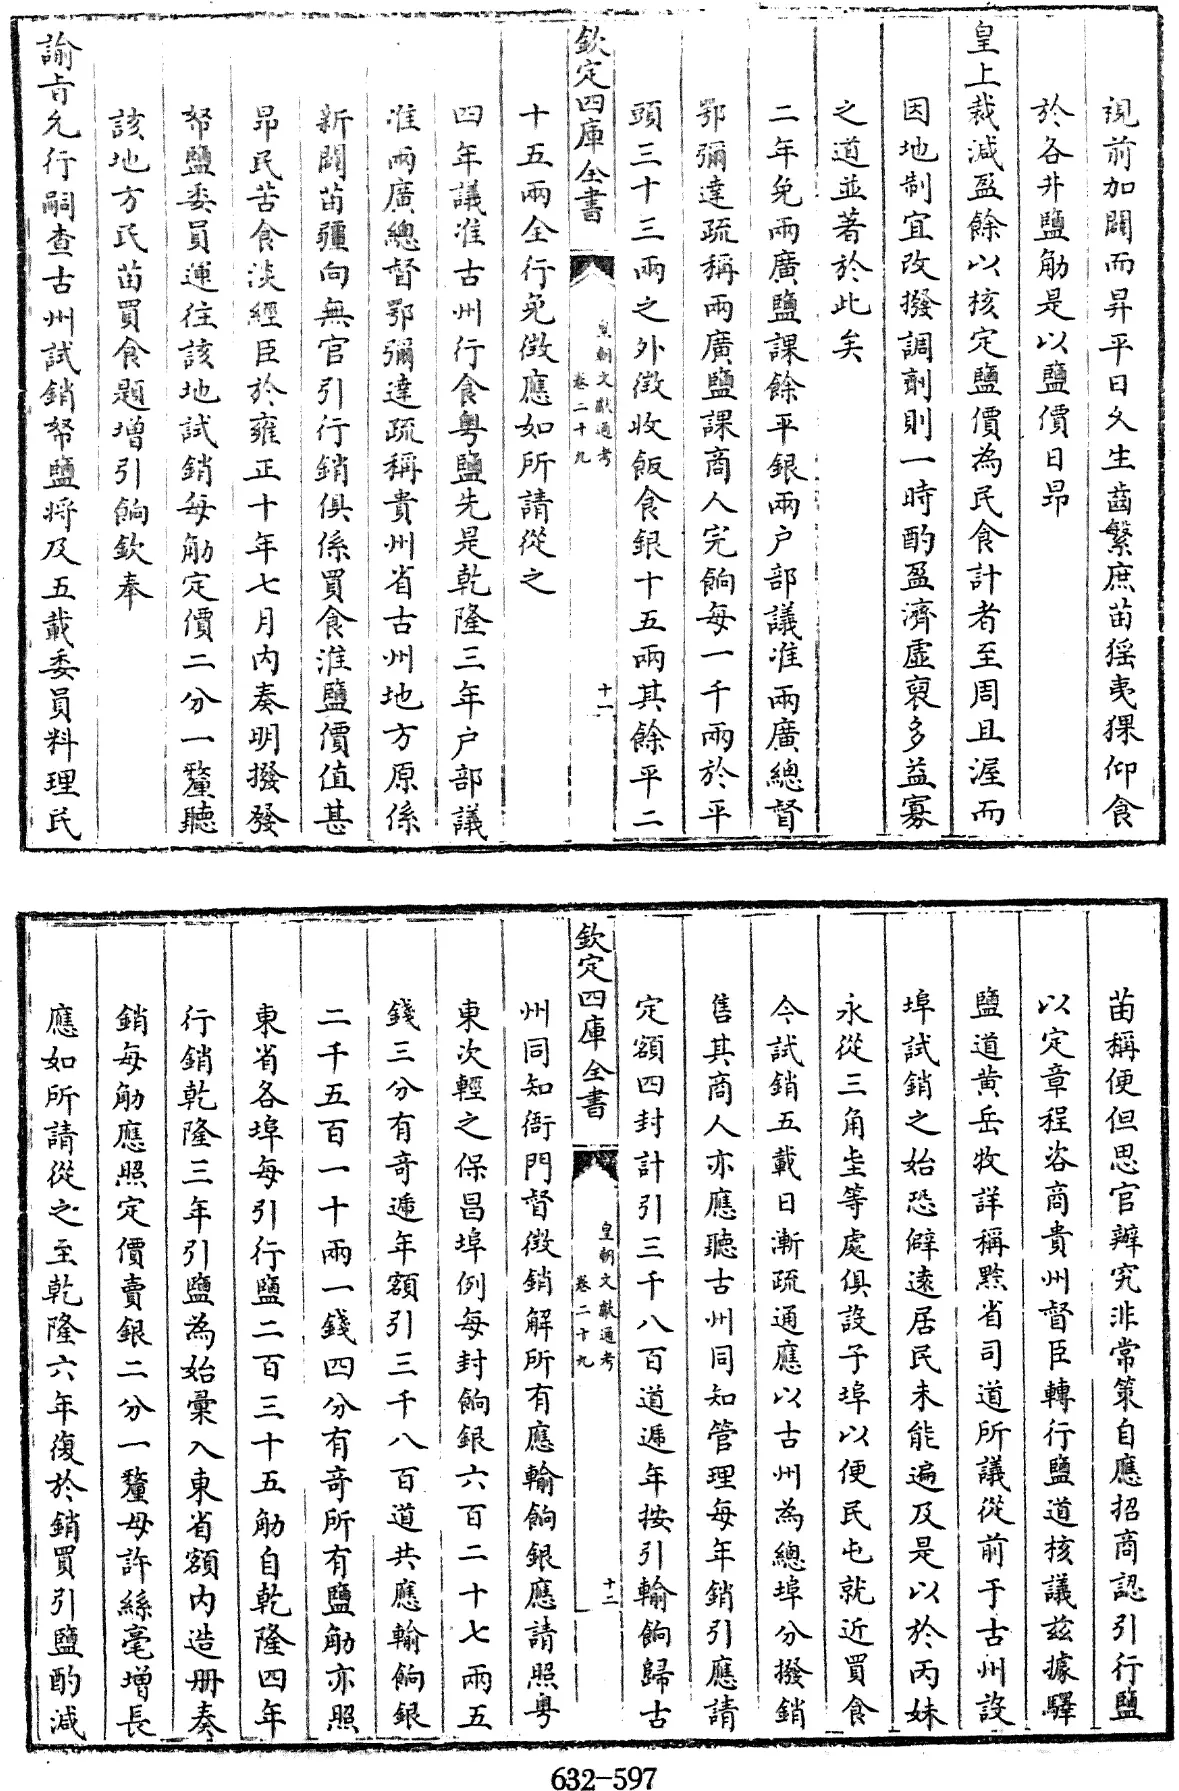 視前加闢而昇平日久生齒繁庶苗猺夷猓仰食
於各井鹽觔是以鹽價日昂
皇上裁減盈餘以核定鹽價為民食計者至周且渥而
因地制宜改撥調劑則一時酌盈濟虛裒多益寡
之道並著於此矣
二年免兩廣鹽課餘平銀兩户部議准兩廣總督
鄂彌達疏稱兩廣鹽課商人完餉每一千兩於平
頭三十三兩之外徵收飯食銀十五兩其餘平二
欽定四庫全書
皇朝文獻通考
卷二十九
十一
十五兩全行免徵應如所請從之
四年議准古州行食粤鹽先是乾隆三年户部議
准兩廣總督鄂彌達疏稱貴州省古州地方原係
新闢苗疆向無官引行銷俱係買食淮鹽價值甚
昂民苦食淡經臣於雍正十年七月内奏明撥發
帑鹽委員運往該地試銷每觔定價二分一釐聽
該地方民苗買食題增引餉欽奉
諭旨允行嗣查古州試銷帑鹽将及五載委員料理民
苗稱便但思官辦究非常策自應招商認引行鹽
以定章程咨商貴州督臣轉行鹽道核議兹據驛
鹽道黄岳牧詳稱黔省司道所議從前于古州設
埠試銷之始恐僻遠居民未能遍及是以於丙妹
永從三角坐等處俱設子埠以便民屯就近買食
今試銷五載日漸疏通應以古州為總埠分撥銷
售其商人亦應聽古州同知管理每年銷引應請
定額四封計引三千八百道遞年按引輸餉歸古
欽定四庫全書
皇朝文獻通考
卷二十九
十二
州同知衙門督徵銷解所有應輸餉銀應請照粤
東次輕之保昌埠例每封餉銀六百二十七兩五
錢三分有奇遞年額引三千八百道共應輸餉銀
二千五百一十兩一錢四分有奇所有鹽觔亦照
東省各埠每引行鹽二百三十五觔自乾隆四年
行銷乾隆三年引鹽為始彙入東省額内造册奏
銷每觔應照定價賣銀二分一釐毋許絲毫增長
應如所請從之至乾隆六年復於銷買引鹽酌減
632-597